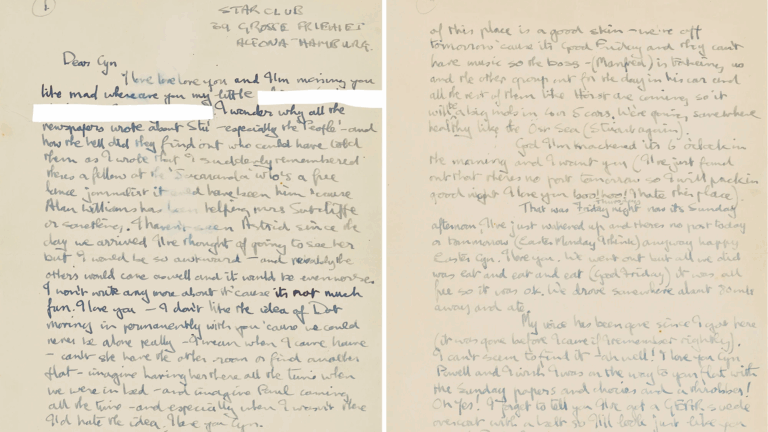 1
STAR CLUB
39 GROSSE FREIHEIT
ALTONA HAMBURG.
Dear Cyn
I love love love you and I'm missing you
like mad where are you my little
I wonder why all the
newspapers wrote about Stu - especially the 'People' - and
how the hell did they find out who could have told
them as I wrote that I suddenly remembered
theres a fellow at the who's a free
lance journalist it could have been him because
Alan Williams has been helping mrs Sutcliffe
or something. I haven't seen Astrid since the
day we arrived I've thought of going to see her
but I would be so awkward - and probably the
others would come as well and it would be even worse.
I won't write any more about it 'cause its not much
fun. I love you - I don't like the idea of Dot
moving in permanently with you 'cause we could
never be alone really - I mean when I come home
- can't she have the other room or find another
flat - imagine having her there all the time when
we were in bed - and imagine Paul coming
all the time - and especially when I wasn't there
I'd hate the idea. I love you Cyn.
of this place is a good skin - we're off
tomorrow 'cause its Good Friday and they can't
have music so the boss - (Manfred) is taking us
and the other group out for the day in his car and
all the rest of them like Horst are coming, so it
will be big mob in four cars. We're going somewhere
healthy like the Ost Sea (Stuart again).
God I'm knackered its 6 o'clock in
the morning and I want you (I've just found
out that theres no post tomorrow so I will pack in
good night I love you boo! hoo! I hate this place).
That was Friday night now its Sunday
afternoon. I've just wakened up and theres no post today
or tomorrow (Easter Monday I think) anyway happy
Easter Cyn. I love you. We went out but all we did
was eat and eat and eat (Good Friday) it was all
free so it was ok. We drove somewhere about miles
away and ate.
My voice has been gone since I got here
(it was gone before I came if I remember rightly).
I can't seem to find it - ah well! I love you Cyn
Powell and I wish I was on the way to your flat with
the Sunday papers and chocies and a throbber!
Oh Yes! I forgot to tell you I've got a GEAR suede
overcoat with a belt so I'll look just like you